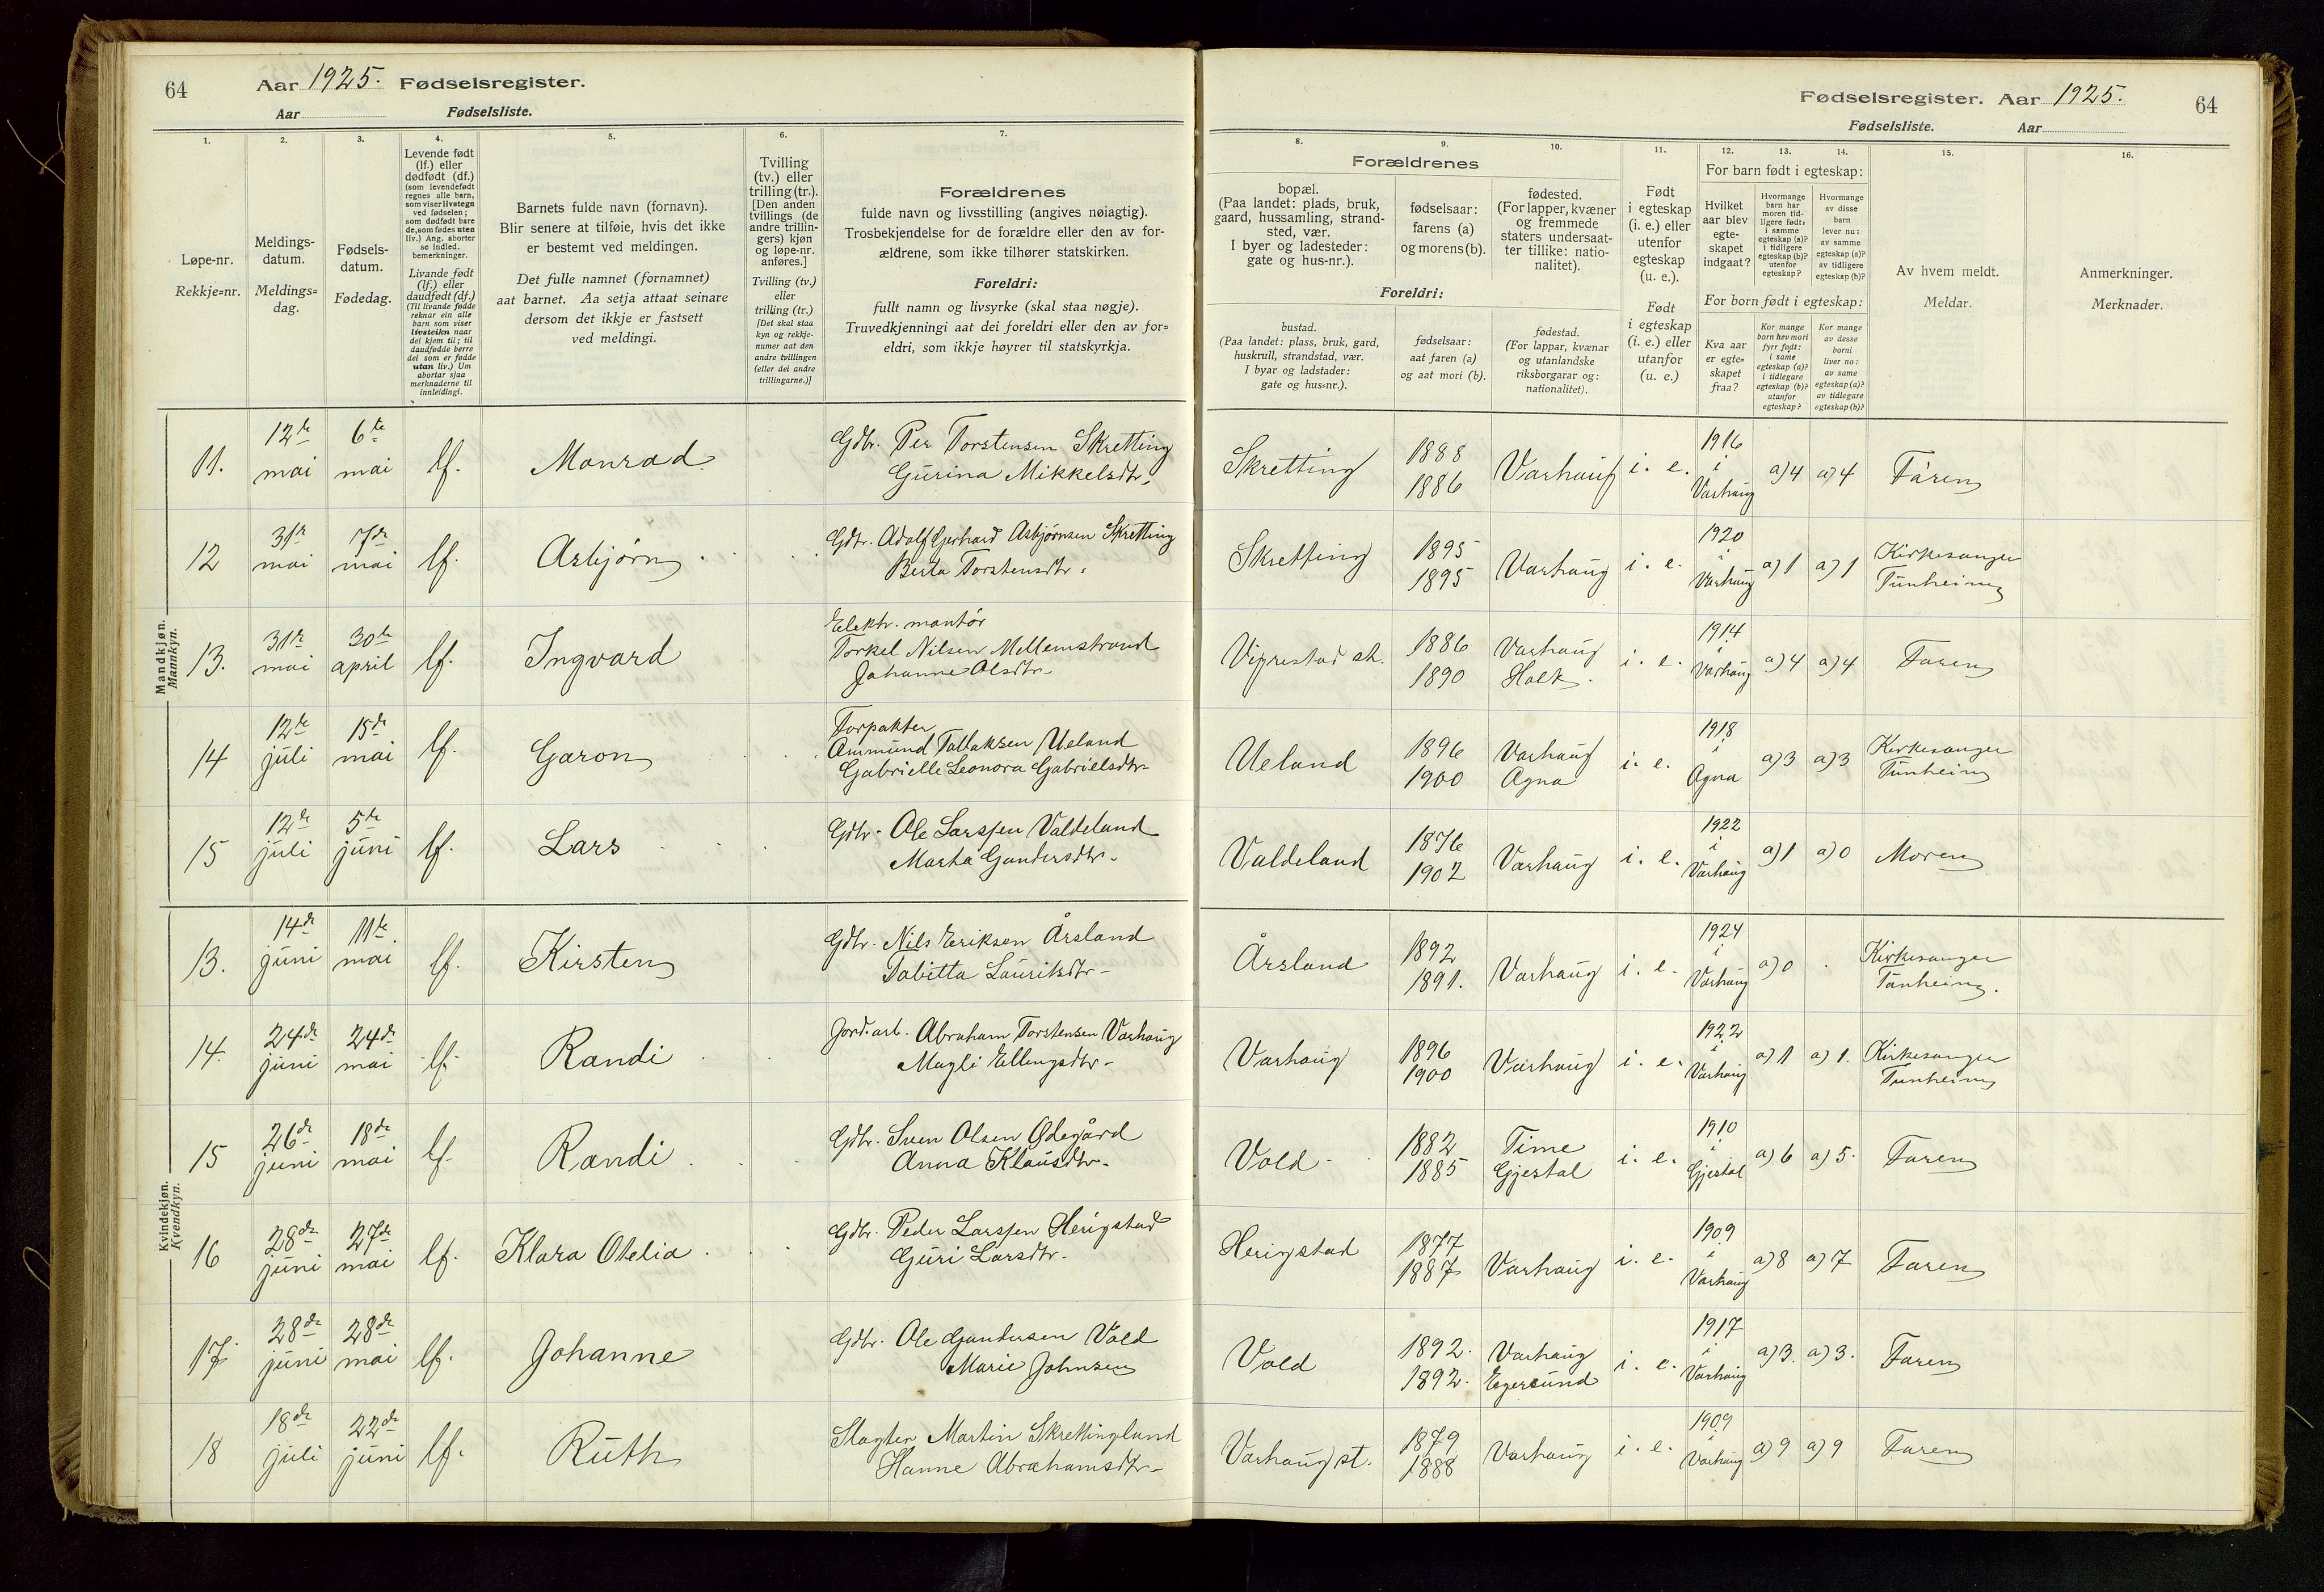 64
Aar 1925. Fødselsregister.
Aar Fødselsliste.
Fødselsregister. Aar 1925.
64
Fødselsliste. Aar
1.
Løpe-nr.
Rekkje=nr.
2.
Meldings-
datum.
Meldings=
dag.
3.
Fødsels-
datum.
Fødedag.
4.
Levende født
(lf.) eller
dødfødt (df.)
(som levendefødt
regnes alle barn,
som viser livstegn
ved fødselen;
som dødfødt bare
de, som fødes uten
liv.) Ang. aborter
se indled.
bemerkninger.
Livande født
(lf.) eller
daudfødt (df.)
(Til livande fødde
reknar ein alle
barn som viser
livsteikn naar
dei kjem til; til
daudfødde berre
dei som er fødde
utan liv.) Um
abortar sjaa
merknaderne til
innleidingi.
5.
Barnets fulde navn (fornavn).
Blir senere at tilføie, hvis det ikke
er bestemt ved meldingen.
Det fulle namnet (fornamnet)
aat barnet. Aa setja attaat seinare
dersom det ikkje er fastsett
ved meldingi.
6.
Tvilling
(tv.) eller
trilling (tr.).
[Den anden
tvillings (de
andre trillin-
gers) kjøn
og løpe-nr.
anføres.]
Tvilling (tv.)
eller
trilling (tr.)
[Det skal staa
kyn og rekkje-
numer aat den
andre tvillingen
(eller dei andre
trillingarne.)]
7.
Forældrenes
fulde navn og livsstilling (angives nøiagtig).
Trosbekjendelse for de forældre eller den av for-
ældrene, som ikke tilhører statskirken.
Foreldri:
fullt namn og livsyrke (skal staa nøgje).
Truvedkjenningi aat dei foreldri eller den av for=
eldri, som ikkje høyrer til statskyrkja.
8.
Forældrenes
bopæl.
(Paa landet: plads, bruk,
gaard, hussamling, strand-
sted, vær.
I byer og ladesteder:
gate og hus-nr.).
Foreldri:
bustad.
(Paa landet: plass, bruk, gard,
huskrull, strandstad, vær.
I byar og ladstader:
gate og hus=nr.).
9.
fødselsaar:
farens (a)
og morens (b).
fødselsaar:
aat faren (a)
og aat mori (b).
10.
fødested.
(For lapper, kvæner
og fremmede
staters undersaat-
ter tillike: natio-
nalitet).
fødestad.
(For lappar, kvænar
og utanlandske
riksborgarar og:
nationalitet).
11.
Født
i egteskap
(i. e.) eller
utenfor
egteskap
(u. e.).
Født
i egteskap
(i. e.) eller
utanfor
(u. e.)
12.
For barn født i egteskap:
Hvilket
aar blev
egte-
skapet
indgaat?
For born født i egteskap:
Kva aar
er egte=
skapet
fraa?
13.
Hvormange
barn har
moren tid-
ligere født:
i samme
egteskap (a)?
i tidligere
egteskap (b)?
utenfor
egteskap?
Kor mange
born hev mori
fyrr født:
i same
egteskap (a)?
i tidlegare
egteskap (b)?
utanfor
egteskap?
14.
Hvormange
av disse
barn
lever nu:
av samme
egteskap (a)?
av tidligere
egteskap (b)?
Kor mange
av desse
borni
liver no:
av same
egteskap (a)?
av tidlegare
egteskap (b)?
15.
Av hvem meldt.
Meldar.
16.
Anmerkninger.
Merknader.
Mandkjøn.
Mannkyn.
11. 12te mai 6te mai lf. Monrad Gdbr. Per Torstensen Skretting
Gurina Mikkelsdtr. Skretting 1888 1886 Varhaug i. e. 1916 i Varhaug a) 4 a) 4 Faren
12 31te mai 7de mai lf. Asbjørn Gdbr. Adolf Gerhard Asbjørnsen Skretting
Berta Torstensdtr. Skretting 1895 1895 Varhaug i. e. 1920 i Varhaug a) 1 a) 1 Kirkesanger Tunheim
13. 31te mai 30te april lf. Ingvard Elektr. montør
Torkel Nilsen Mellemstrand
Johanne Olsdtr. Vigrestad st. 1886 1890 Varhaug i. e. 1914 i Varhaug a) 4 a) 4 Faren
14 12te juli 15de mai lf. Garon Forpakter
Ammund Tallaksen Ueland
Gabrielle Leonora Gabrielsdtr. Ueland 1896 1900 Varhaug Ogna i. e. 1918 i Ogna a) 3 a) 3 Kirkesanger Tunheim
15 12te juli 5te juni lf. Lars Gdbr. Ole Larssen Valdeland
Marta Gundersdtr. Valdeland 1876 1902 Varhaug i. e. 1922 i Varhaug a) 1 a) 0 Moren
Kvindekjøn.
Kvendkyn.
13. 14de juni 11te mai lf. Kirsten Gdbr. Nils Eriksen Årsland
Tabitta Lauritsdtr. Årsland 1892 1891. Varhaug i. e. 1924 i Varhaug a) 0 Kirkesanger Tunheim.
14. 24de juni 24de mai lf. Randi Jord.arb. Abraham Torstensen Varhaug
Magli Ellingsdtr. Varhaug 1896 1900 Varhaug i. e. 1922 i Varhaug a) 1 a) 1. Kirkesanger Tunheim
15 26de juni 18de mai lf. Randi Gdbr. Sven Olsen Ødegård
Anna Klausdtr. Vold 1882 1885 Time Gjestal i. e. 1910 i Gjestal a) 6 a) 5. Faren
16 28de juni 27de mai lf. Klara Otelia Gdbr. Peder Larssen Herigstad
Guri Larsdtr. Herigstad 1877 1887 Varhaug i. e. 1909 i Varhaug a) 8 a) 7 Faren
17 28de juni 28de mai lf. Johanne Gdbr. Ole Gundersen Vold
Marie Johnsen Vold 1892. 1892. Varhaug Egersund i. e. 1917 i Varhaug a) 3. a) 3. Faren
18 18de juli 22de juni lf. Ruth Slagter Martin Skrettingland
Hanne Abrahamsdtr. Varhaug st. 1879 1888 Varhaug i. e. 1909 i Varhaug a) 9 a) 9 Faren